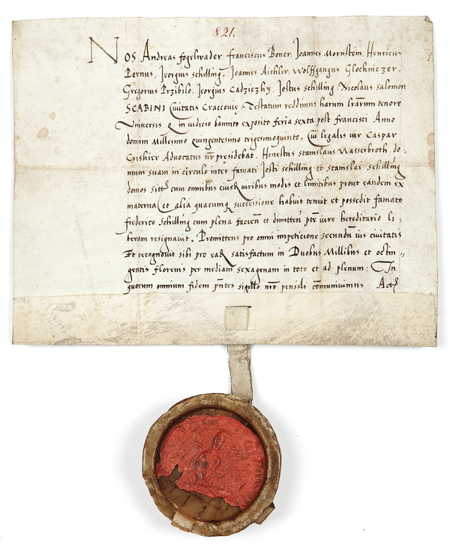 821.
NOS Andreas fogelveder franciscus Boner, Ioannes Mornstein Henricus
Pernus, Georgius schilling, Ioannes Aichler, Wolffgangus Glockniczer,
Gregorius Przibilo, Georgius Cadziczky, Iostus schilling Nicolaus salomon
SCABINI Civitatis Cracovie Testatum reddimus harum lrarum tenore
Universis Q in iudicio bannito exposito feria sexta post francisci Anno
domini Millesimo quingentesimo trigesimoquinto, Cui legalis vir Caspar
Crishier Advocatus nr presidebat, Honestus stanislaus Wasserbroth do-
mum suam in circulo inter famati Iosti schilling et stanislai schilling
domos sitam cum omnibus iuribus modis et limitibus prout eandem ex
materna et alia quacunq successione habuit tenuit et possedit famato
frederico Schilling cum plena faciendi et dimittendi pte iure hereditario li-
beram resignavit, Promittens pro omni impeticione secundum ius civitatis
Et recognovit sibi pro ea satisfactum in Duobus Millibus et octin-
gentis florenis per mediam sexagenam in toto et ad plenum: In
quorum omnium fidem pntes sigillo nro pensili communivimus Act